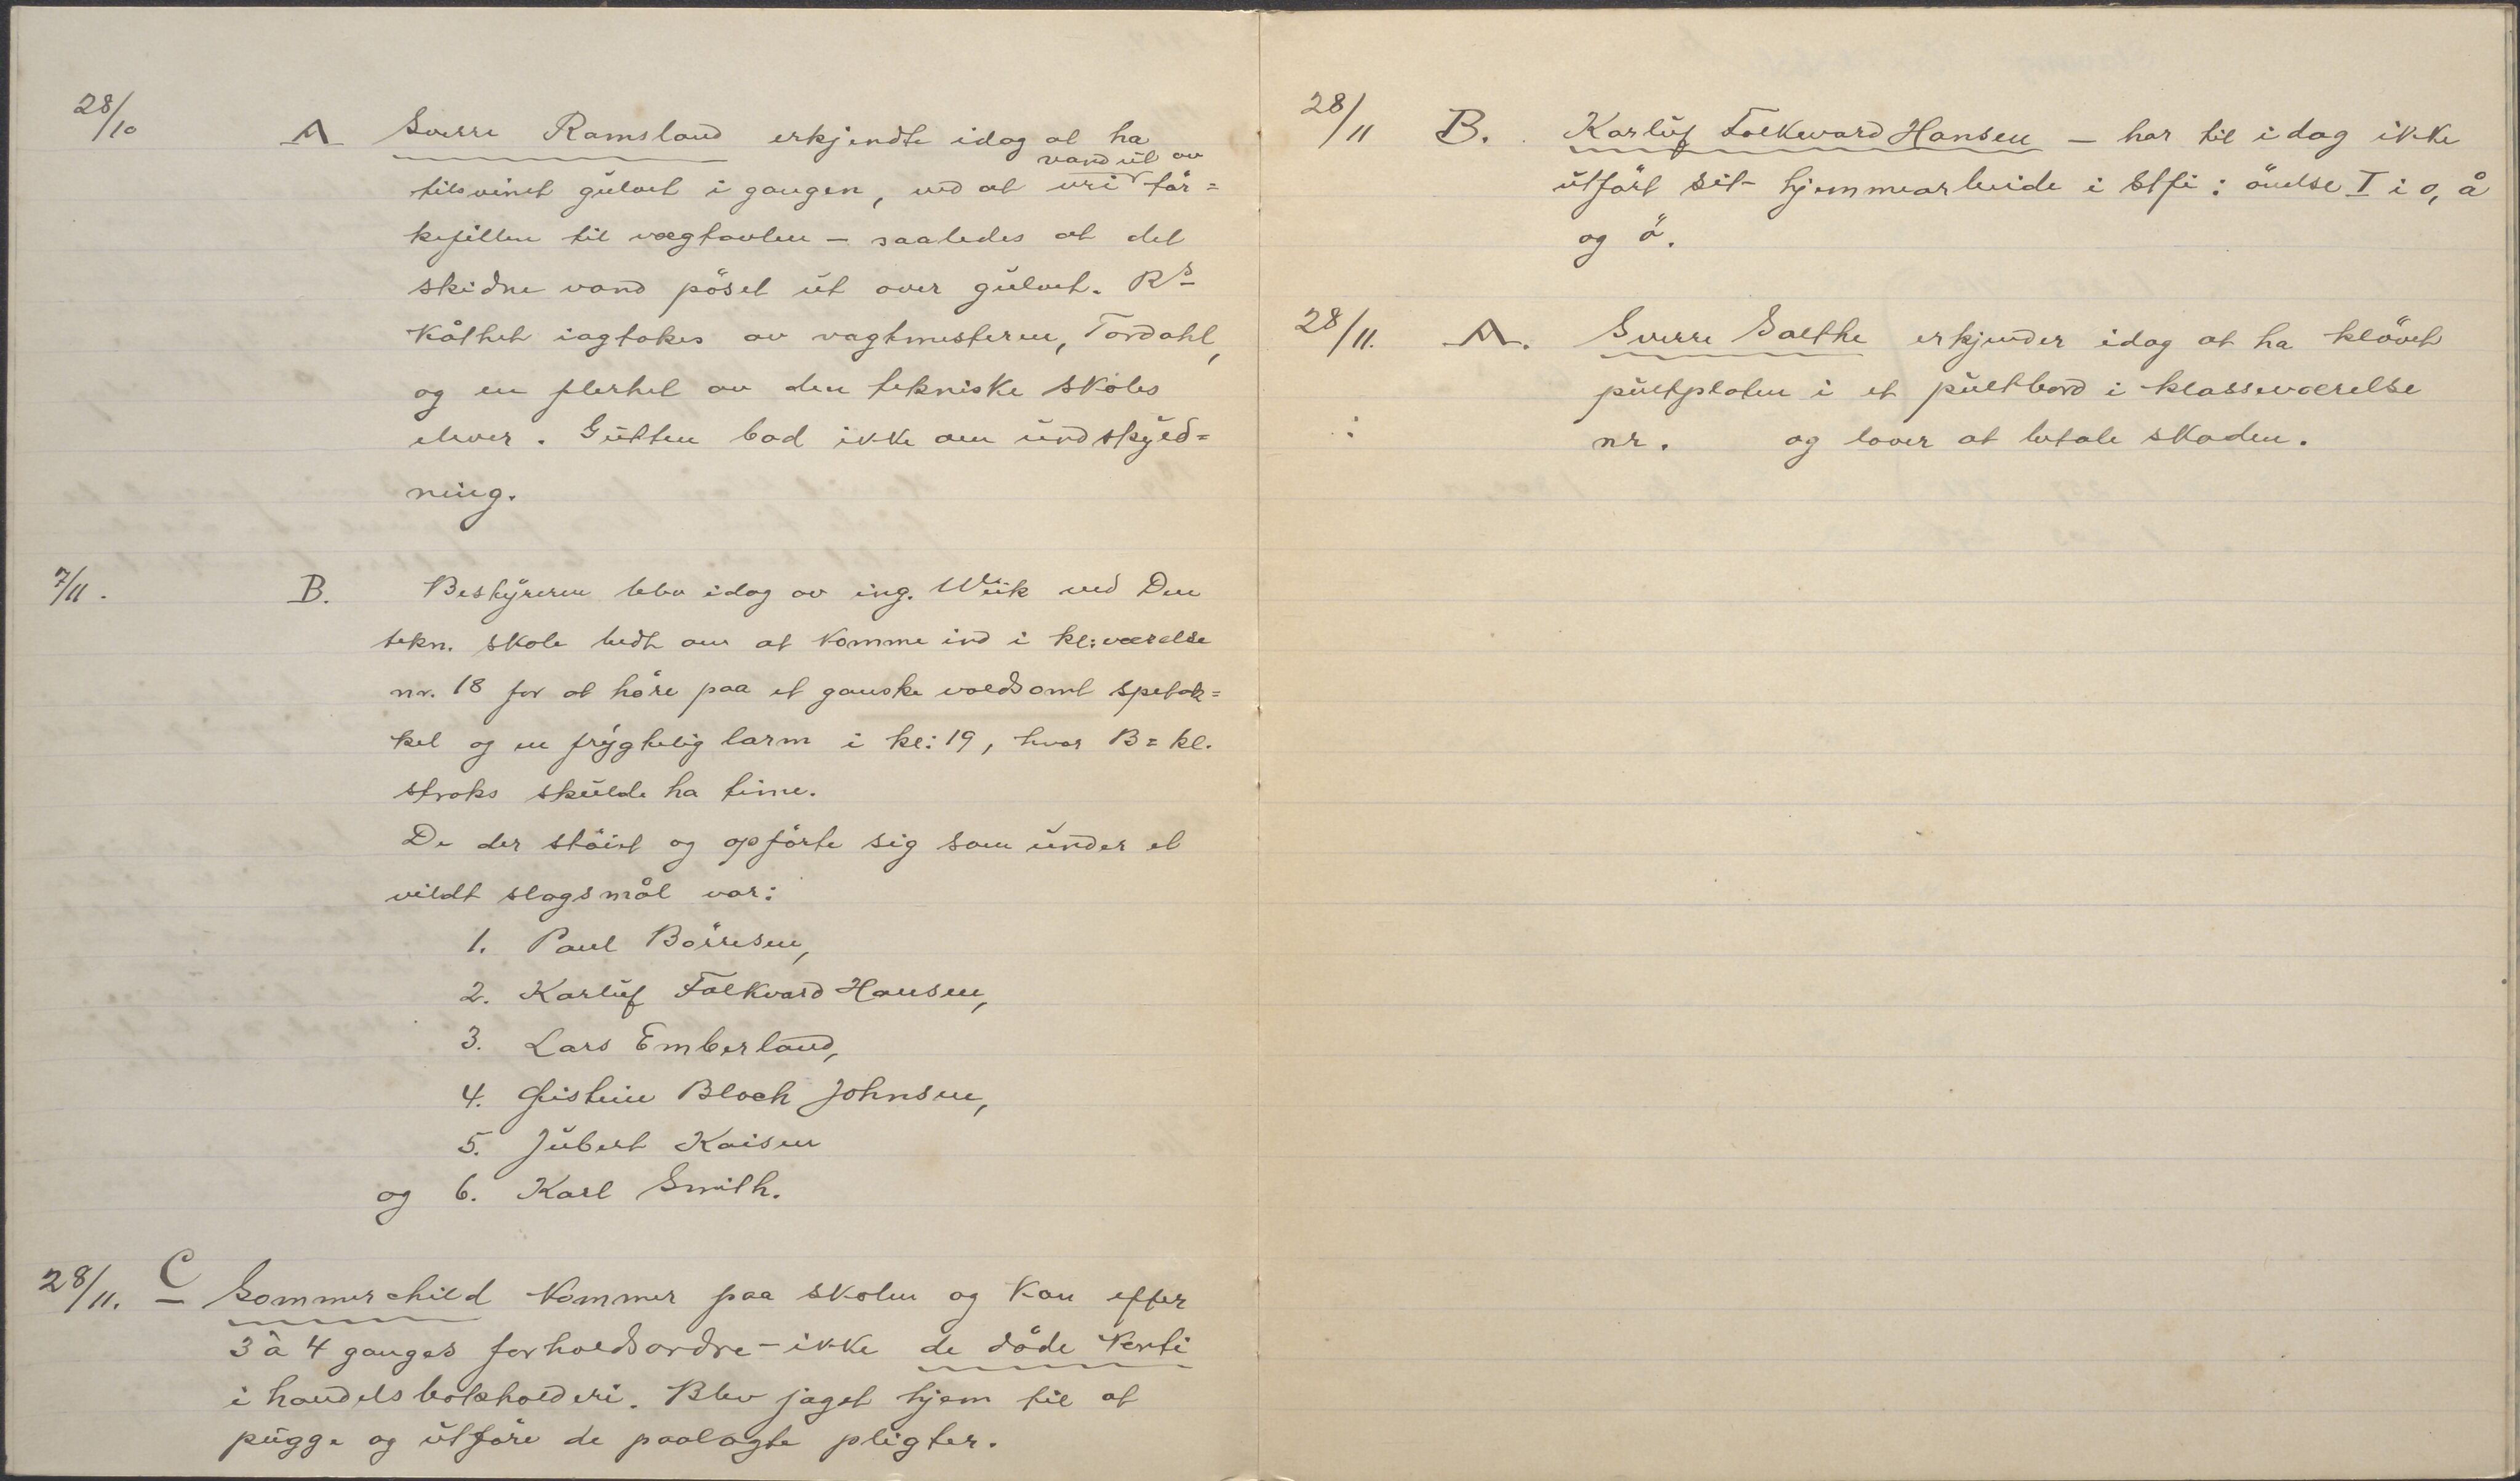 28/10 A Sverre Ramsland erkjendte idag at ha
tilsvinet gulvet i gangen, ved at vri vand ut av tör=
kefillen til vægtavlen – saaledes at det
skidne vand pöset ut over gulvet. Rs
kåthet iagtokes av vagtmesteren, Tordahl,
og en flerhet av den tekniske skoles
elever. Gutten bad ikke om undskyld=
ning.
7/11. B. Bestyreren blev idag av ing. Wiik ved Den
tekn. skole bedt om at komme ind i kl:værelse
nr. 18 for at höre paa et ganske voldsomt spetak=
kel og en frygtelig larm i kl: 19, hvor B=kl.
straks skulde ha time.
De der stöiet og opförte sig som under et
vildt slagsmål var:
1. Paul Börresen,
2. Karluf Falkvard Hansen,
3. Lars Emberland,
4. Øistein Bloch Johnsen,
5. Jubert Kaisen
og 6. Karl Smith.
28/11. C Sommerchild kommer paa skolen og kan efter
3 à 4 ganges forholdsordre – ikke de döde konti
i handelsbokholderi. Blev jaget hjem til at
pugge og utföre de paalagte pligter.
28/11 B. Karluf Falkevard Hansen – har til idag ikke
utfört sit hjemmearbeide i Stfi: övelse I i o, å
og ö.
28/11. A. Sverre Saethe erkjender idag at ha klövet
pultplaten i et pultbord i klasseværelse
nr. og lover at betale skaden.